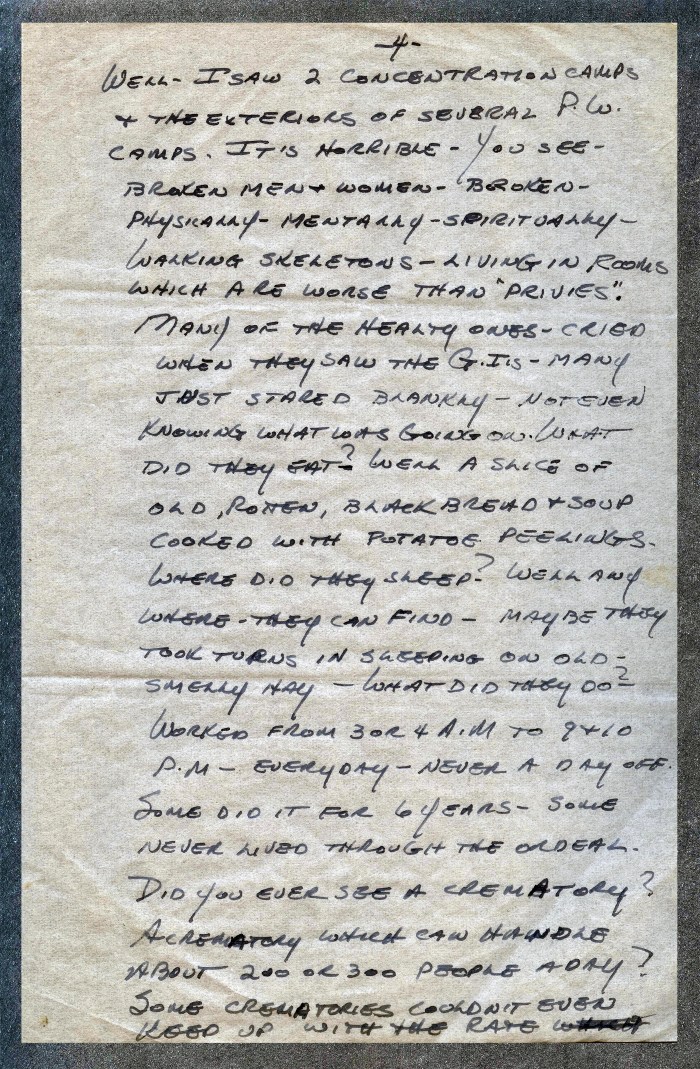 -4-
WELL- I SAW 2 CONCENTRATION CAMPS
+ THE EXTERIORS OF SEVERAL P.W.
CAMPS. IT'S HORRIBLE - YOU SEE-
BROKEN MEN + WOMEN - BROKEN-
PHYSICALLY- MENTALLY -SPIRITUALLY-
WALKING SKELETONS - LIVING IN ROOMS
WHICH ARE WORSE THAN "PRIVIES".
MANY OF THE HEALTY ONES - CRIED
WHEN THEY SAW THE G.I's - MANY
JUST STARED BLANKLY - NOT EVEN
KNOWING WHAT WAS GOING ON. WHAT
DID THEY EAT-? WELL A SLICE OF
OLD, ROTTEN, BLACK BREAD + SOUP
COOKED WITH POTATOE PEELINGS.
WHERE DID THEY SLEEP-? WELL ANY
WHERE - THEY CAN FIND - MAYBE THEY
TOOK TURNS IN SLEEPING ON OLD-
SMELLY HAY - WHAT DID THEY DO-?
WORKED FROM 3 OR 4 A.M TO 9+10
P.M - EVERYDAY - NEVER A DAY OFF.
SOME DID IT FOR 6 YEARS - SOME
NEVER LIVED THROUGH THE ORDEAL.
DID YOU EVER SEE A CREMATORY?
A CREMATORY WHICH CAN HANDLE
ABOUT 200 OR 300 PEOPLE A DAY?
SOME CREMATORIES COULDN'T EVEN
KEEP UP WITH THE RATE